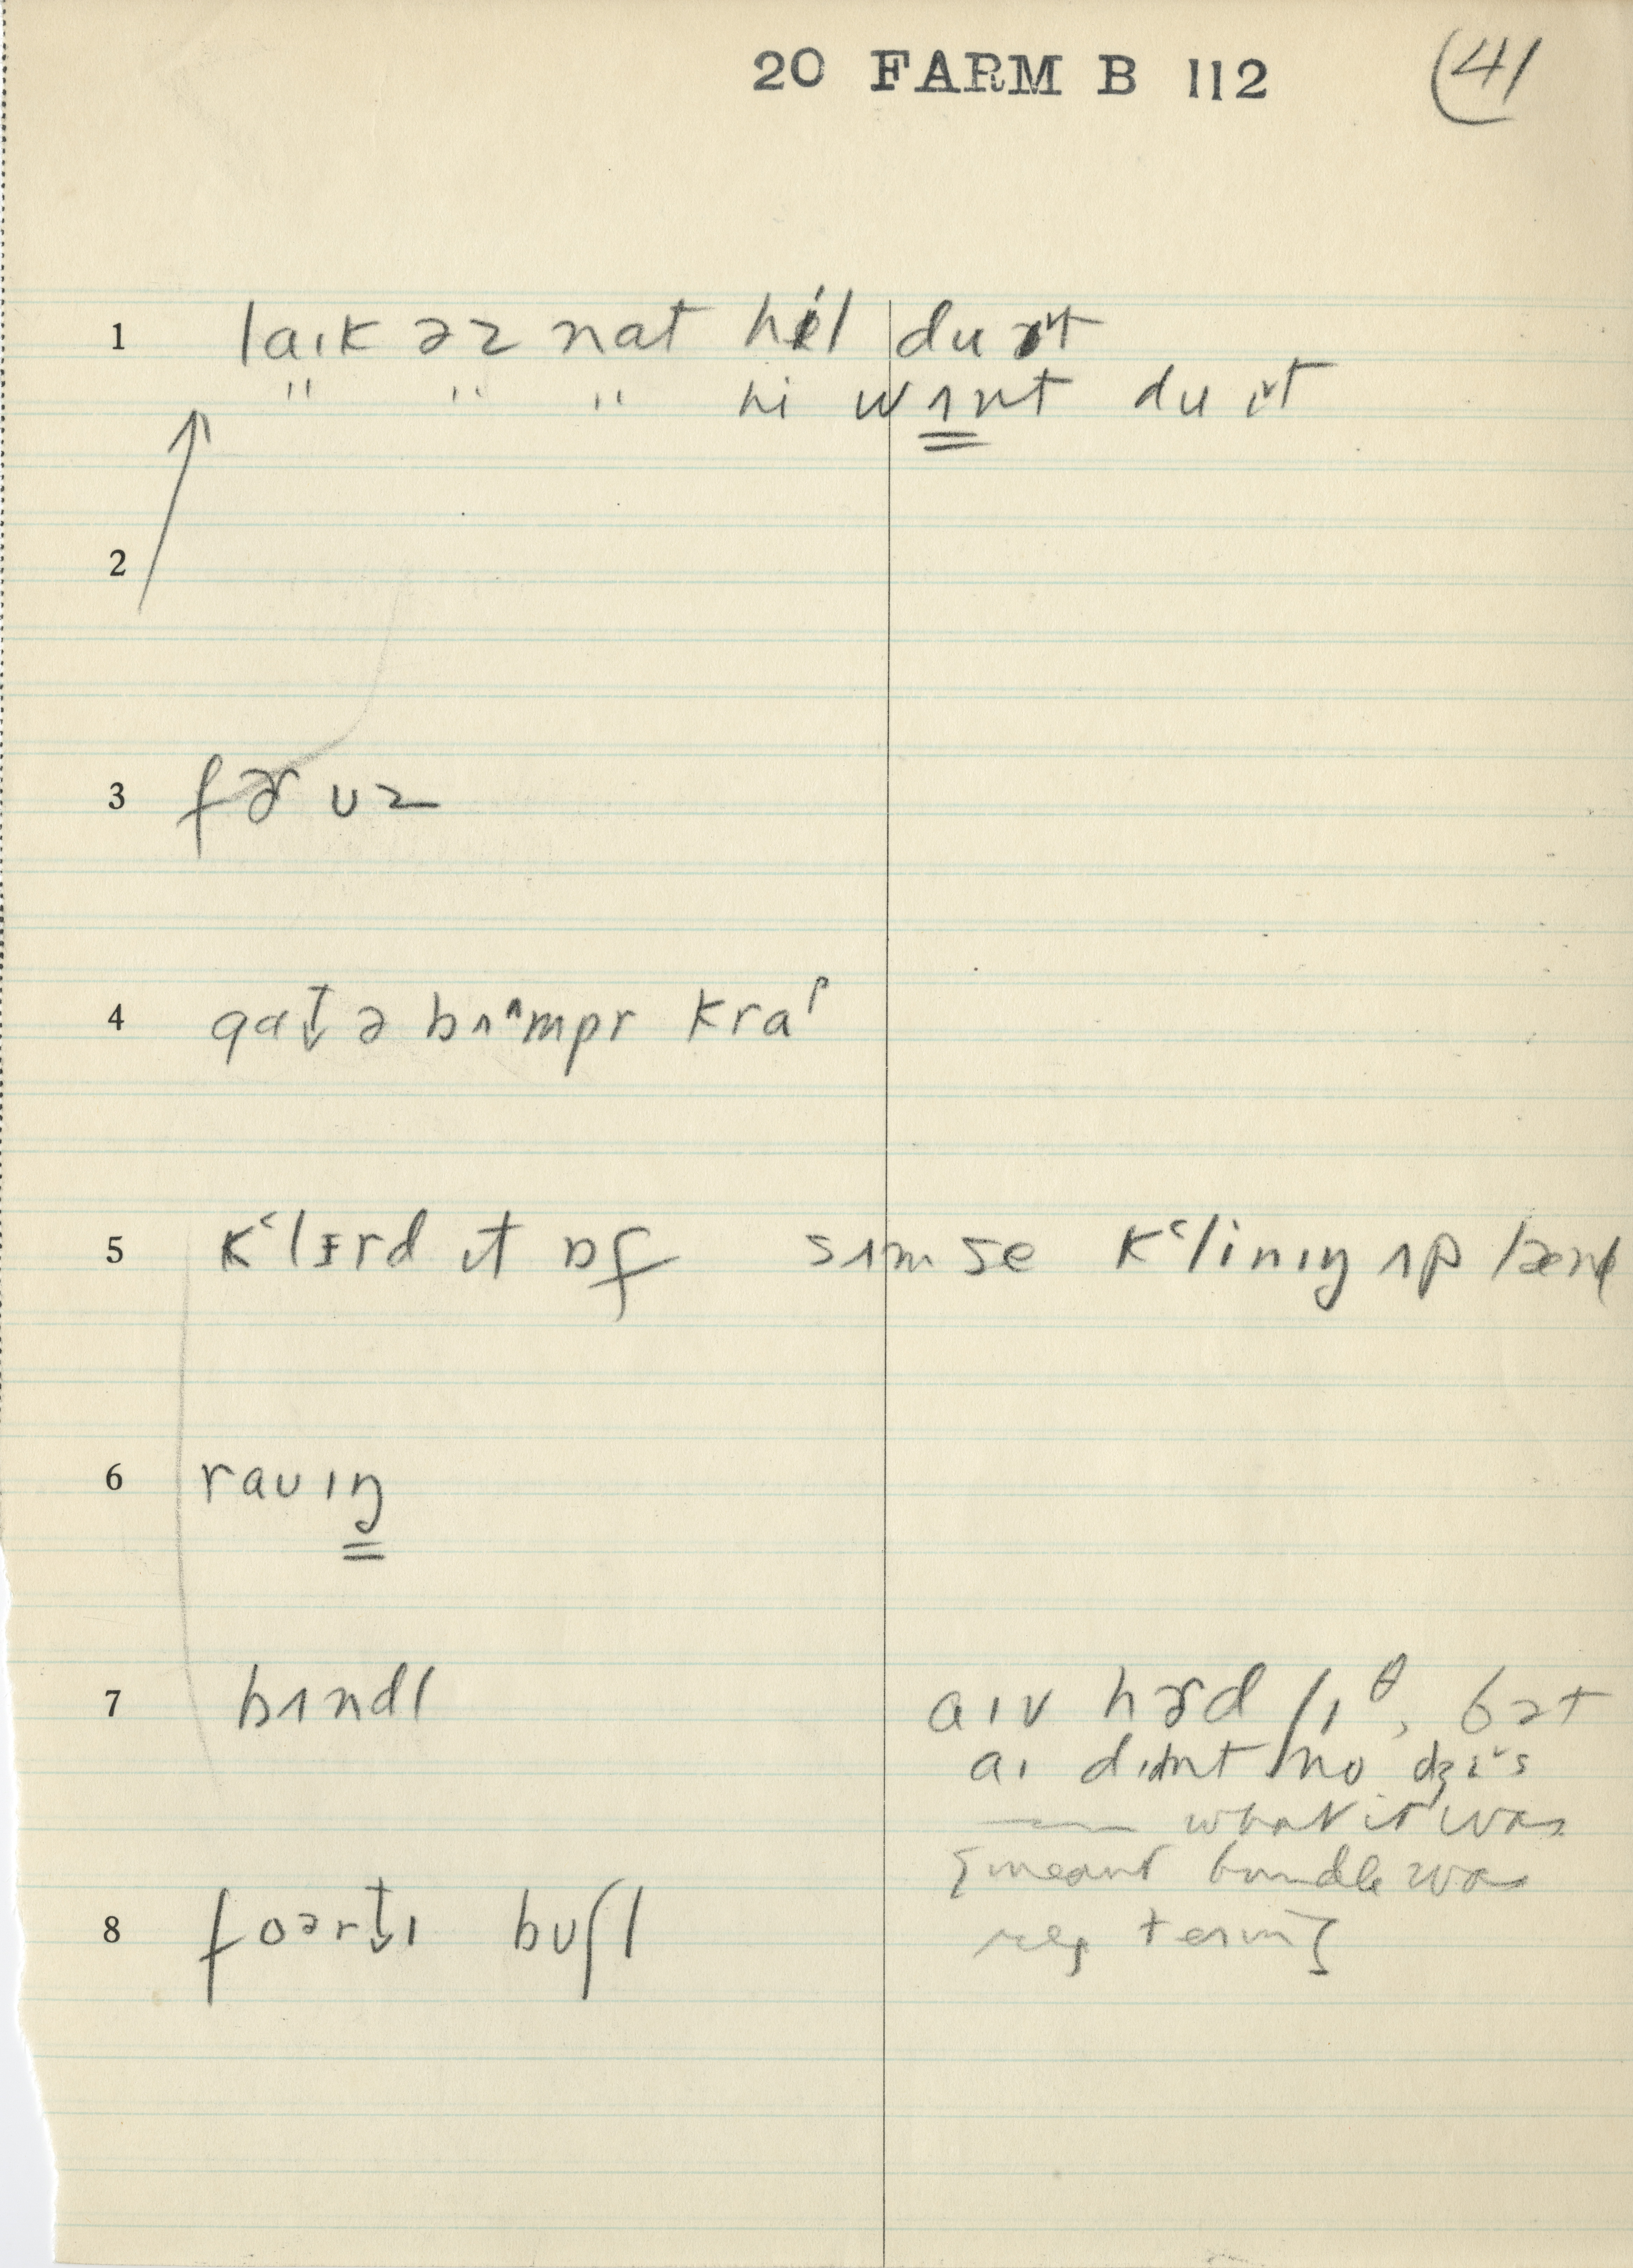 20 FARM B 112 (41
1 laɪk əz nat hɪl du ɪt
" " " hi wʌnt du ɪt
2
3 fɚ ʊz
4 gat ə bʌmpr kraᵖ
5 kʻlɪrd ɪt ɒf sʌm se kʻlinɪŋ ʌp lænd
6 raʊɪŋ
7 bʌndl aɪv hɚd /ɪθ, bət
aɪ dɪdnt no dʒɪs
— what it was
{meant bundle was
reg term}
8 foərtɪ bʊʃl